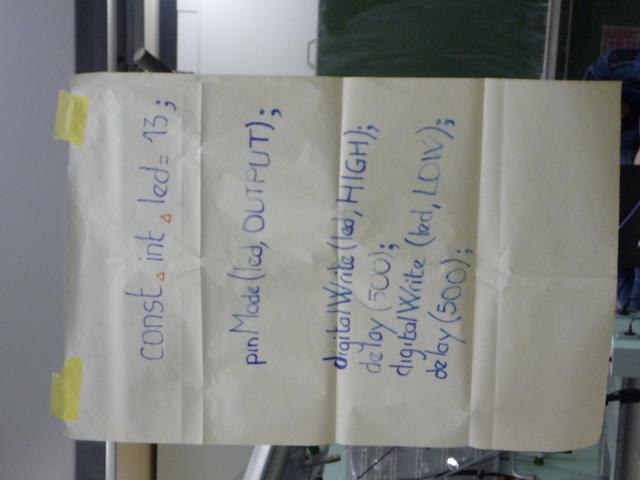 const △ int △ led = 13;
pinMode (led, OUTPUT);
digitalWrite (led, HIGH);
delay (500);
digitalWrite (led, LOW);
delay (500);